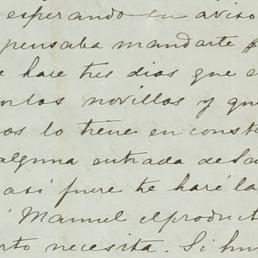 esperando su aviso
pensaba mandarte
hace tres dias que
novillos y qu
os lo tiene en const
alguna entrada de
asi fuere te haré la
Manuel el product
rto necesita. Si hu